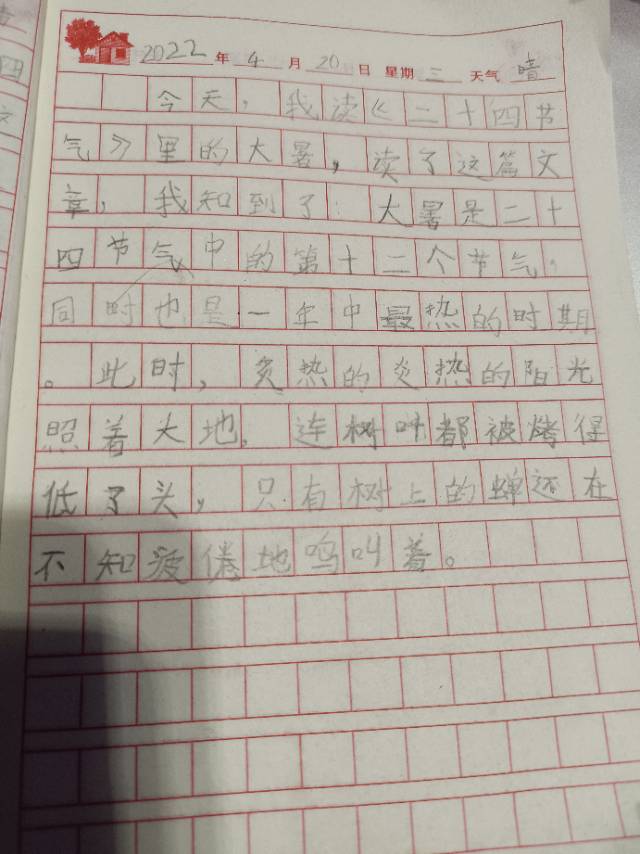 2022 年 4 月 20 日 星期 三 天气 晴
今天，我读《二十四节
气》里的大暑，读了这篇文
章，我知到了：大暑是二十
四节气中的第十二个节气，
同时也是一年中最热的时期
。此时，炎热的炎热的阳光
照着大地，连树叶都被烤得
低了头，只有树上的蝉还在
不知疲倦地鸣叫着。